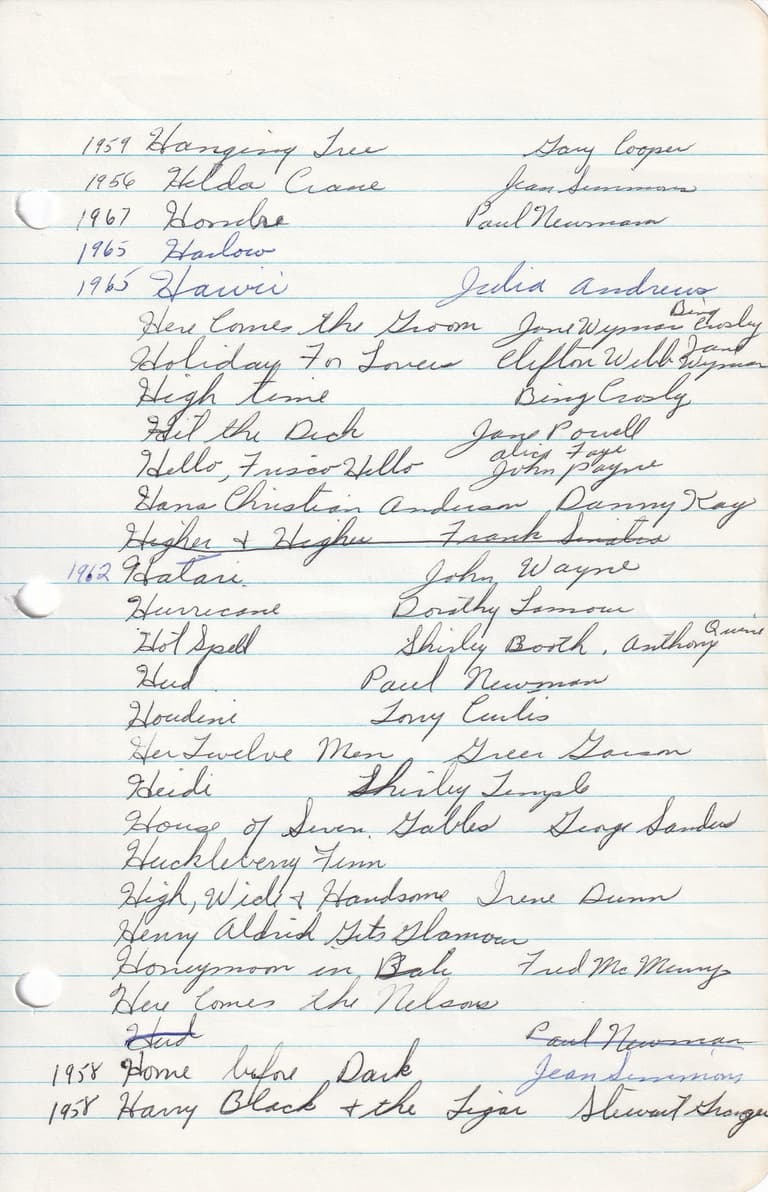 1959 Hanging Tree Gary Cooper
1956 Helda Crane Jean Simmons
1967 Hombre Paul Newman
1965 Harlow
1965 Hawii Julia Andrews
Here Comes the Groom Jane Wyman Bing Crosby
Holiday For Lovers Clifton Webb Jane Wyman
High time Bing Crosly
Hit the Deck Jane Powell
Hello, Frisco Hello Alice Faye John Payne
Hans Christian Anderson Danny Kay
Higher & Higher Frank Sinatra
1962 Hatari John Wayne
Hurricane Dorothy Lamour
Hot Spell Shirley Booth, Anthony Quinn
Hud Paul Newman
Houdini Tony Curtis
Her Twelve Men Greer Garson
Heidi Shirley Temple
House of Seven Gables George Sanders
Huckleberry Finn
High, Wide & Handsome Irene Dunn
Henry Aldrich Gets Glamour
Honeymoon in Bali Fred McMurry
Here Comes the Nelsons
Hud Paul Newman
1958 Home before Dark Jean Simmons
1958 Harry Black & the Tigar Stewart Granger